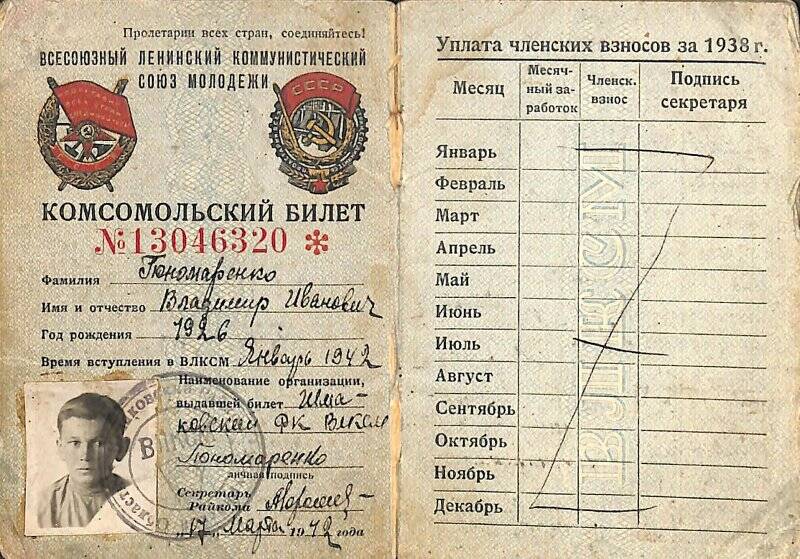 Пролетарии всех стран, соединяйтесь!
ВСЕСОЮЗНЫЙ ЛЕНИНСКИЙ КОММУНИСТИЧЕСКИЙ
СОЮЗ МОЛОДЕЖИ
СССР
КОМСОМОЛЬСКИЙ БИЛЕТ
№13046320 *
Фамилия Пономаренко
Имя и отчество Владимир Иванович
Год рождения 1926
Время вступления в ВЛКСМ Январь 1942
Наименование организации,
выдавшей билет
ФК ВЛКСМ
Пономаренко
личная подпись
Секретарь
Райкома
"17" Марта 1942 года
Уплата членских взносов за 1938 г.
Месяц Месяч-ный за-работок Членск. взнос Подпись секретаря
Январь
Февраль
Март
Апрель
Май
Июнь
Июль
Август
Сентябрь
Октябрь
Ноябрь
Декабрь
ВЛКСМ